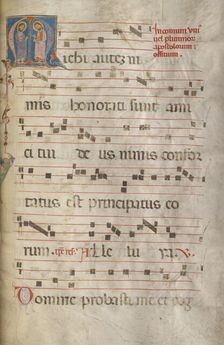 In comuni uni
uel plurimor
apostolorum
officium
Michi autem n
imis honorati sunt ami
ci tui de us nimis confor
tatus est principatus eo
rum. Al le lu ya. V.
Domine probasti me et cog